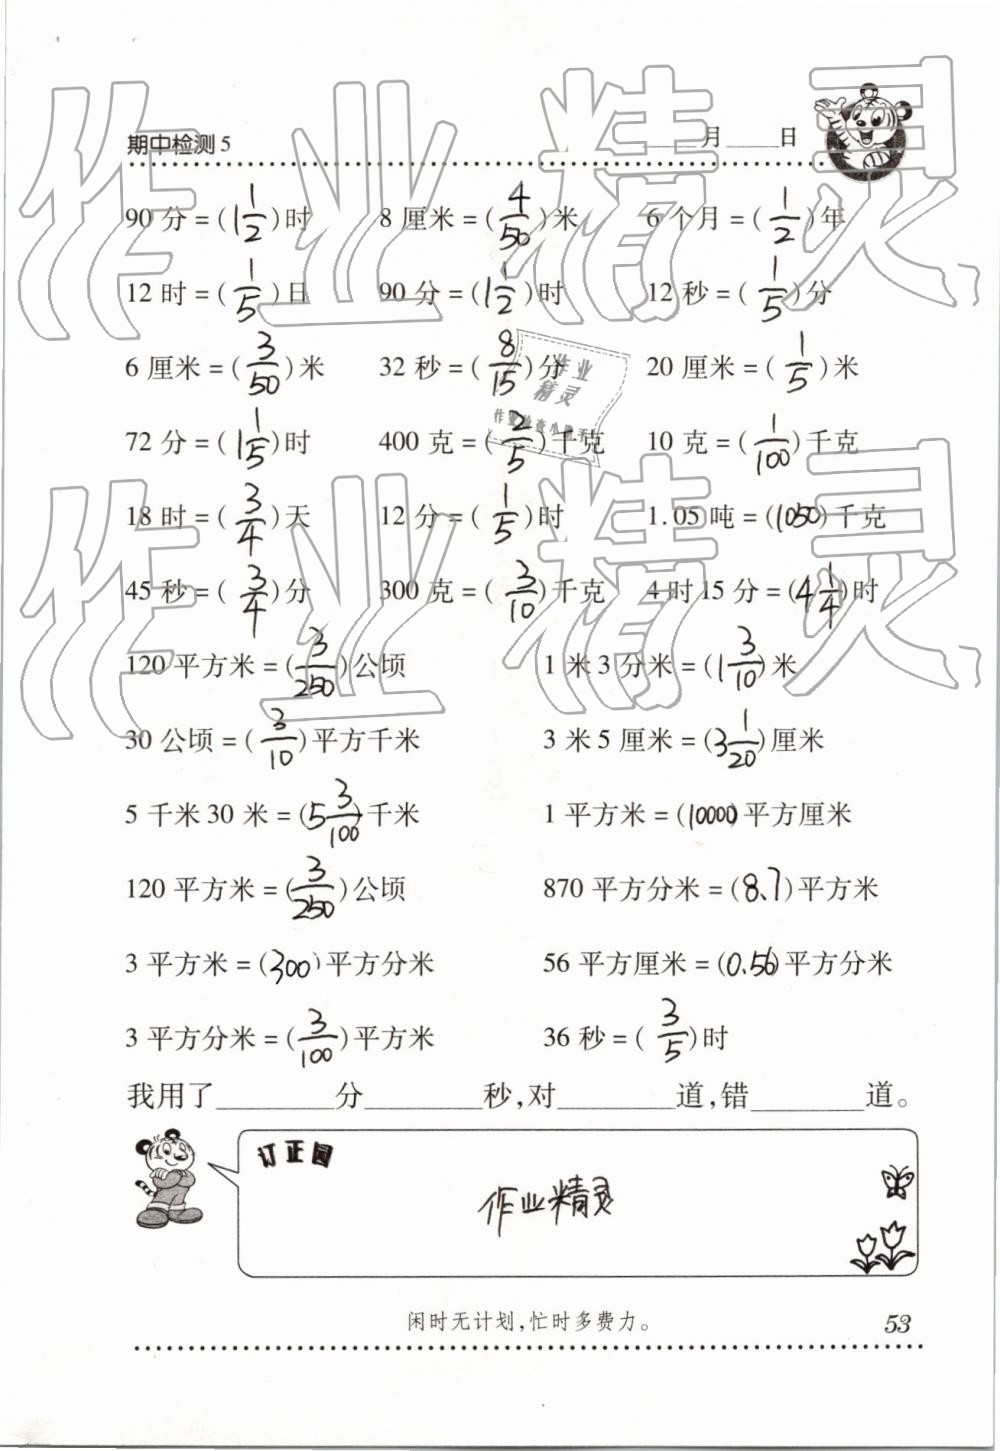 期中检测5 ____月____日
90分=(1 1/2)时 8厘米=(4/50)米 6个月=(1/2)年
12时=(1/5)日 90分=(1 1/2)时 12秒=(1/5)分
6厘米=(3/50)米 32秒=(8/15)分 20厘米=(1/5)米
72分=(1 1/5)时 400克=(2/5)千克 10克=(1/100)千克
18时=(3/4)天 12分=(1/5)时 1.05吨=(1050)千克
45秒=(3/4)分 300克=(3/10)千克 4时15分=(4 1/4)时
120平方米=(3/250)公顷 1米3分米=(1 3/10)米
30公顷=(3/10)平方千米 3米5厘米=(3 1/20)厘米
5千米30米=(5 3/100)千米 1平方米=(10000)平方厘米
120平方米=(3/250)公顷 870平方分米=(8.7)平方米
3平方米=(300)平方分米 56平方厘米=(0.56)平方分米
3平方分米=(3/100)平方米 36秒=(3/5)时
我用了________分________秒,对________道,错________道。
订正园
作业精灵
闲时无计划,忙时多费力。 53
作业精灵
作业精灵
作业
精灵
作业检查小助手